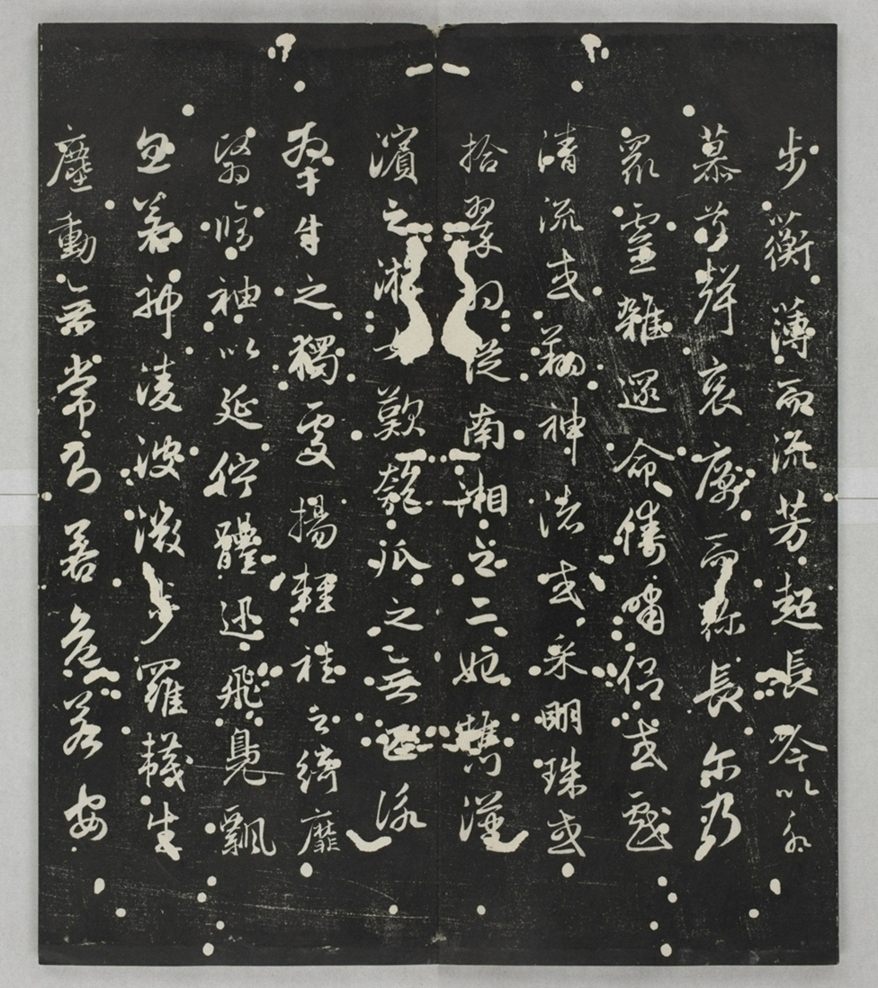 步蘅薄而流芳超長吟以永
慕兮聲哀厲而弥長尔乃
眾靈雜遝命儔嘯侶或戲
清流或翔神渚或采明珠或
拾翠羽從南湘之二妃攜漢
濱之游女歎匏瓜之無匹詠
牽牛之獨處揚輕袿之綺靡
翳脩袖以延佇體迅飛鳧飄
忽若神淩波微步羅韈生
塵動無常則若危若安